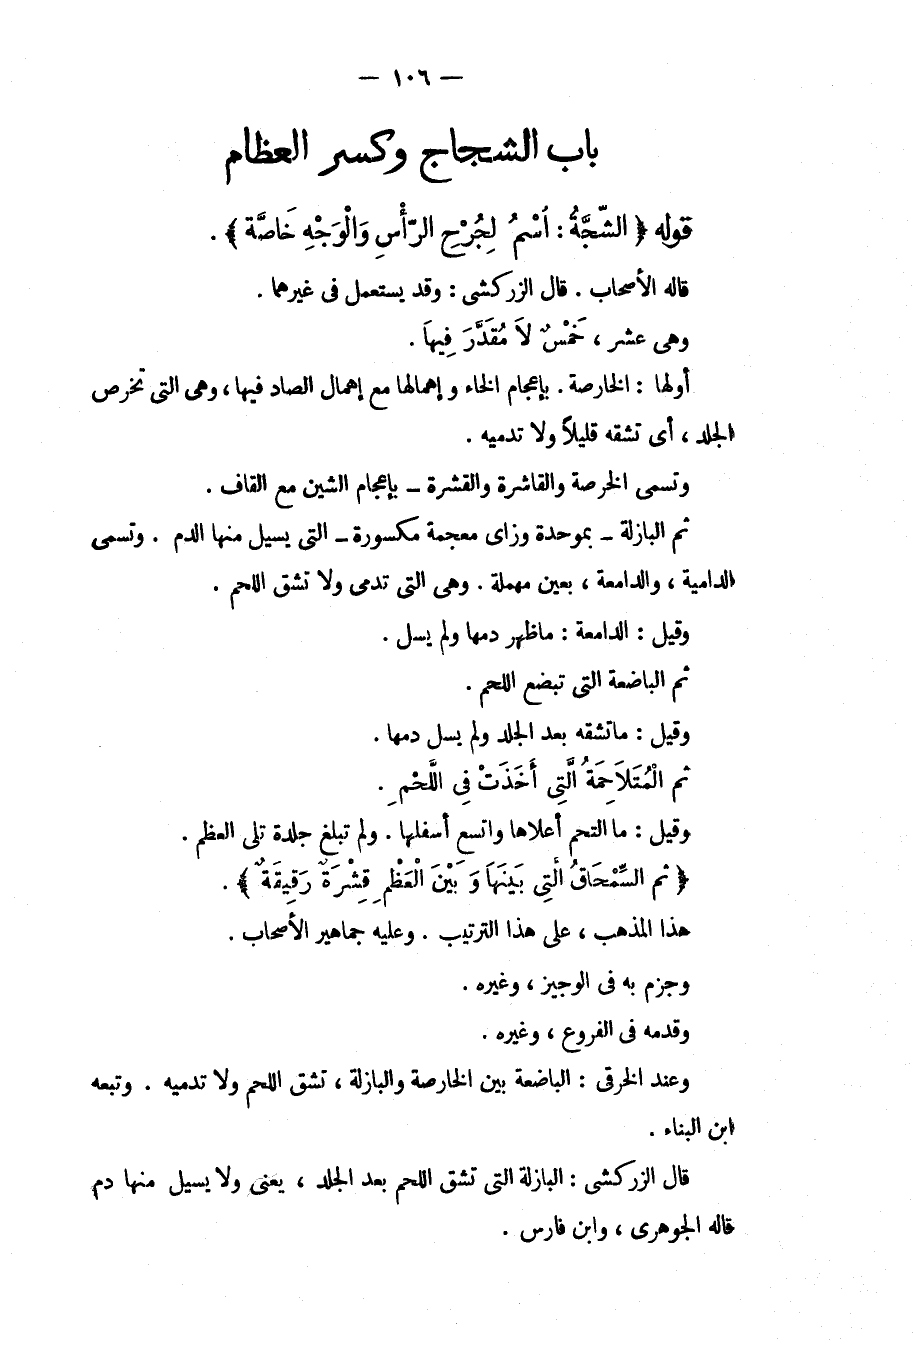 — ١٠٦ —
باب الشجاج وكسر العظام
قوله ﴿ الشَّجَّةُ : اُسْمُ لِجُرْحِ الرَّأْسِ وَالْوَجْهِ خَاصَّة ﴾ .
قاله الأصحاب . قال الزركشى : وقد يستعمل فى غيرهما .
وهى عشر ، خَمْسٌ لاَ مُقَدَّرَ فِيهَا .
أولها : الخارصة . بإعجام الخاء وإهمالها مع إهمال الصاد فيها ، وهى التى تخرص
الجلد ، أى تشقه قليلاً ولا تدميه .
وتسمى الخرصة والقاشرة والقشرة – بإعجام الشين مع القاف .
ثم البازلة – بموحدة وزاى معجمة مكسورة – التى يسيل منها الدم . وتسمى
الدامية ، والدامعة ، بعين مهملة . وهى التى تدمى ولا تشق اللحم .
وقيل : الدامعة : ماظهر دمها ولم يسل .
ثم الباضعة التى تبضع اللحم .
وقيل : ماتشقه بعد الجلد ولم يسل دمها .
ثم الْمُتَلاَحِمَةُ الَّتِي أَخَذَتْ فِي اللَّحْمِ .
وقيل : ما التحم أعلاها واتسع أسفلها . ولم تبلغ جلدة تلى العظم .
﴿ ثم السِّمْحَاقُ الَّتِي بَيْنَهَا وَ بَيْنَ الْعَظْمِ قِشْرَةٌ رَقِيقَةٌ ﴾ .
هذا المذهب ، على هذا الترتيب . وعليه جماهير الأصحاب .
وجزم به فى الوجيز ، وغيره .
وقدمه فى الفروع ، وغيره .
وعند الخرقى : الباضعة بين الخارصة والبازلة ، تشق اللحم ولا تدميه . وتبعه
ابن البناء .
قال الزركشى : البازلة التى تشق اللحم بعد الجلد ، يعنى ولا يسيل منها دم
قاله الجوهرى ، وابن فارس .